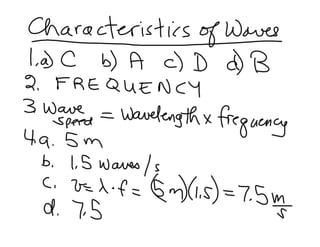 Characteristics of Waves
1.a) C b) A c) D d) B
2. FREQUENCY
3 Wave speed = Wavelength x frequency
4a. 5 m
b. 1.5 waves/s
c. v = λ·f = (5 m)(1.5) = 7.5 m/s
d. 7.5